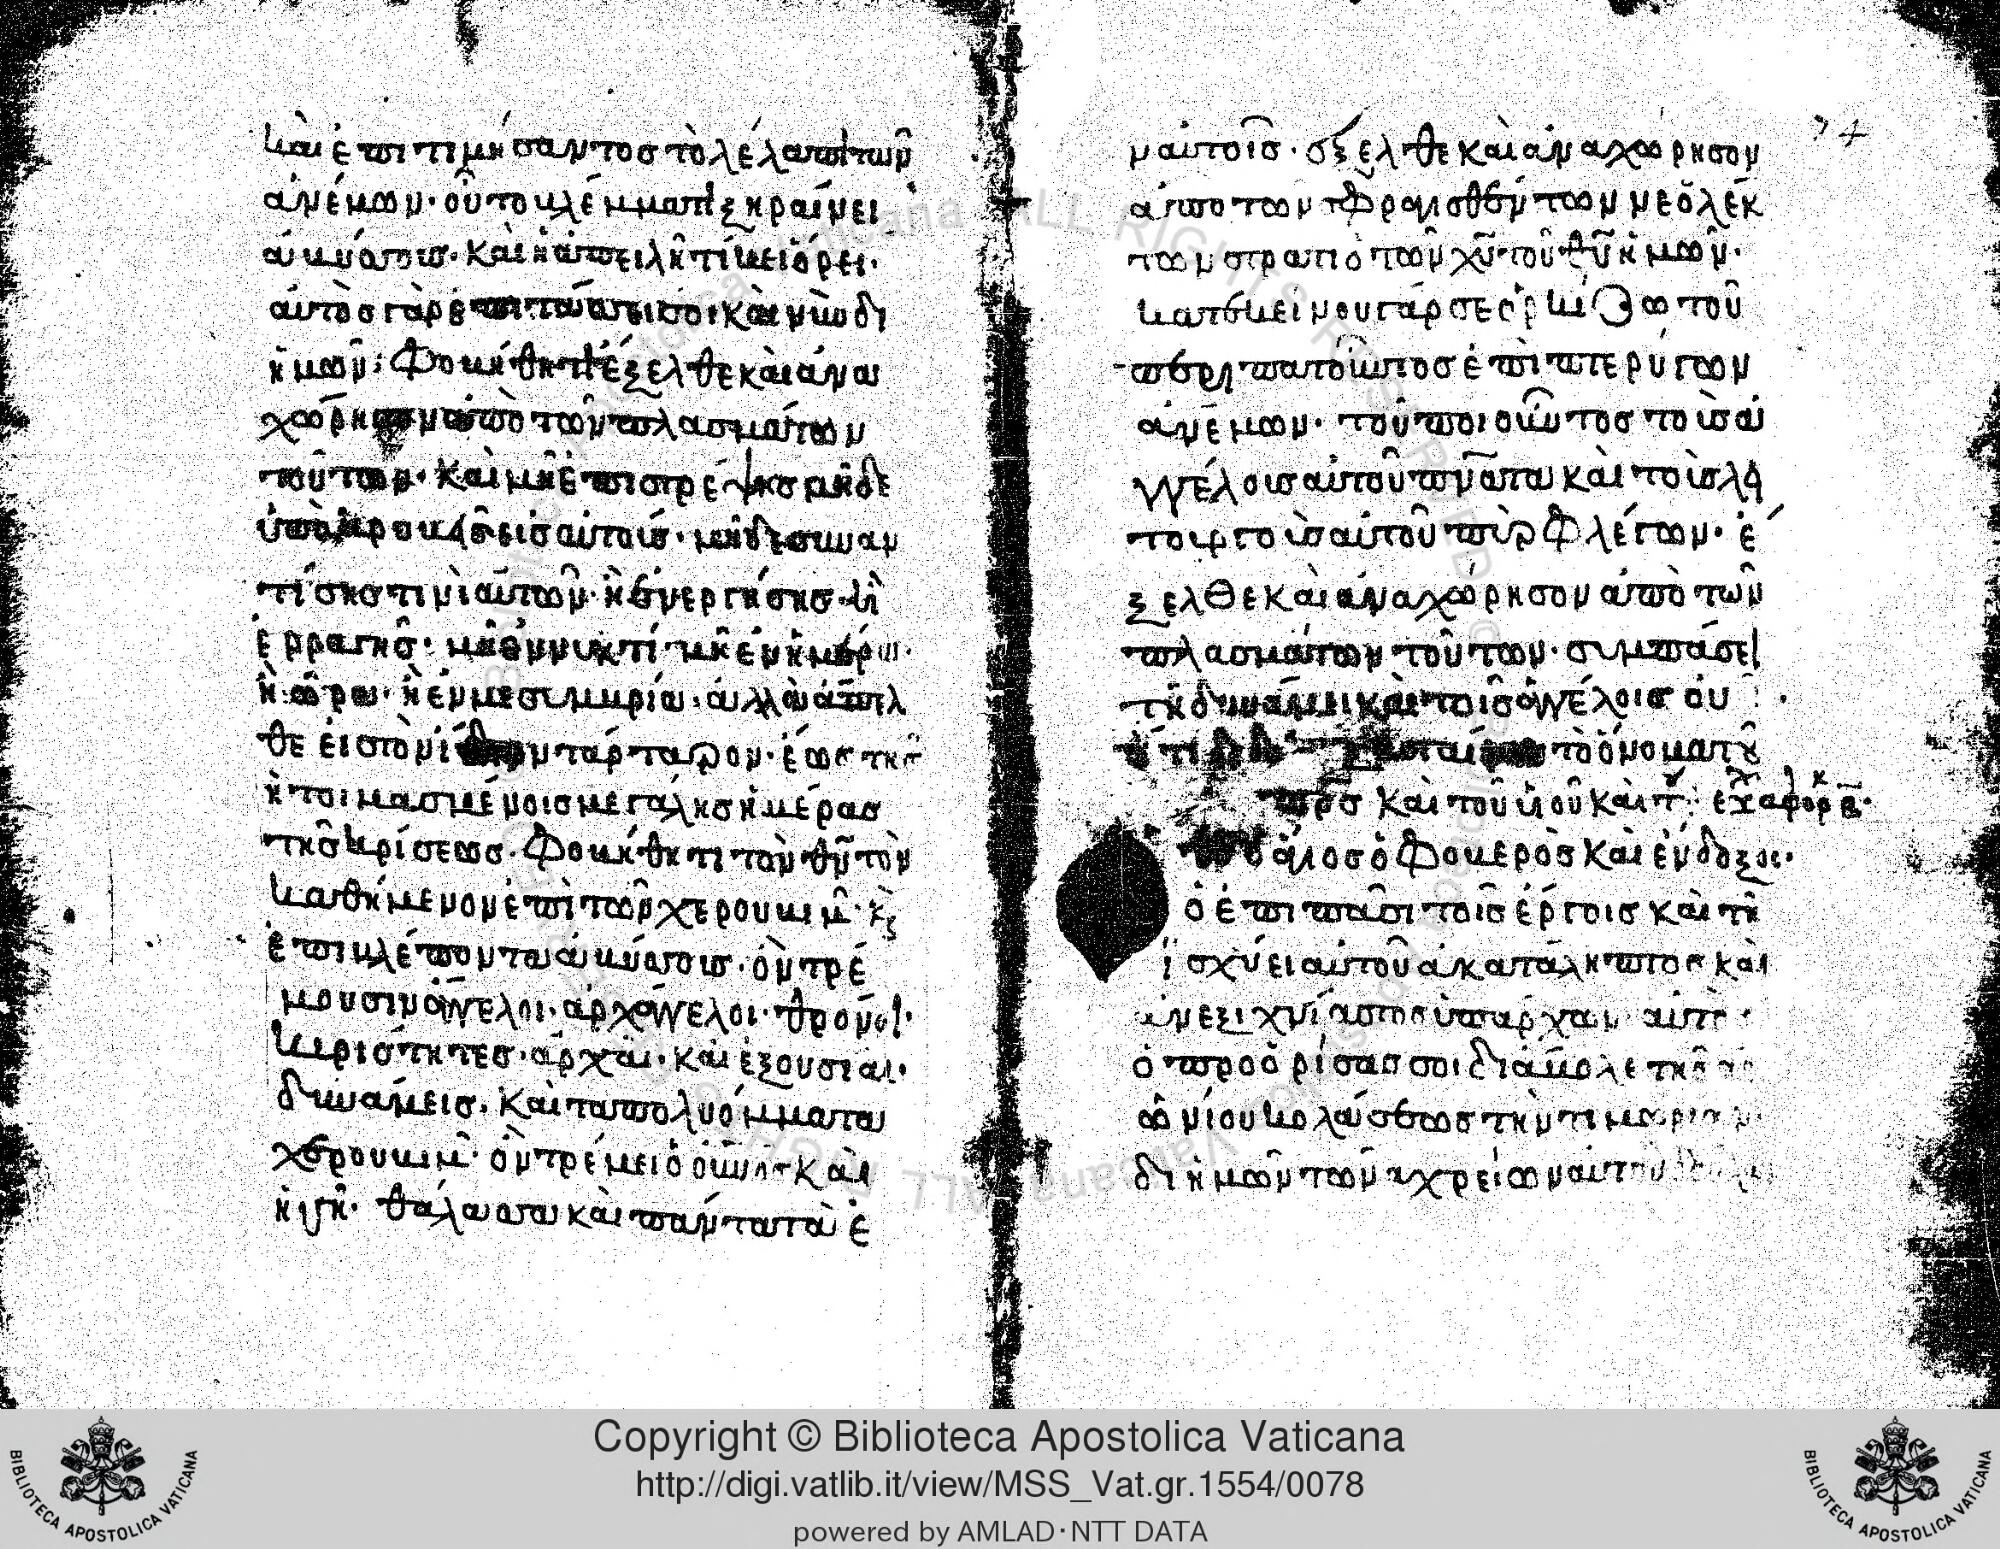 καὶ ἐπιτιμήσαντος τὸ λέλαπι τῶν
ἀνέμων· οὗ το βλέμμα ξηραίνει
ἀβύσσους· καὶ ἡ ἀπειλὴ τίκει ὄρει·
αὐτὸς γὰρ ἐπιτάσσει σοι καὶ νῦν δι
ἡμῶν· Φοβήθητι ἔξελθε καὶ ἀνα
χώρησον ἀπὸ τῶν πλασμάτων
τούτων· καὶ μὴ ἐπιστρέψης μηδὲ
ὑποκρυβῆς εἰς αὐτοὺς· μηδὲ συναν
τίσης τινὶ αὐτῶν· ἢ ἐνεργήσης· ἢ
ἐρραγῆς· μὴ ἐν νυκτί· μὴ ἐν ἡμέρα·
ἢ ὥρα· ἢ ἐν μεσυμβρία· ἀλλὰ ἄπελ
θε εἰς τὸν ἴδιον τάρταρον· ἕως τῆς
ἡτοιμασμένοις μεγάλης ἡμέρας
τῆς κρίσεως· Φοβήθητι τὸν θν τὸν
καθήμενον ἐπὶ τῶν χερουβιμ· κ
ἐπιβλέποντα ἀβύσσους· ὃν τρέ
μουσιν ἄγγελοι· ἀρχάγγελοι· θρόνοι·
κυριότητες· ἀρχαὶ· καὶ ἐξουσίαι·
δυνάμεις· καὶ τὰ πολυόμματα
χερουβιμ· ὃν τρέμει ὁ οὐνος καὶ
ἡ γῆ· θάλασσα καὶ πάντα τὰ ἐ
74
ν αὐτοῖς· ἔξελθε καὶ ἀναχώρησον
ἀπὸ τῶν σφραγισθέντων νεολέκ
των στρατιοτῶν χυ τοῦ θυ ἡμῶν·
κατ ἐκείνου γάρ σε ὁρκίζω τοῦ
περιπατοῦντος ἐπὶ πτερύγων
ἀνέμων· τοῦ ποιοῦντος τοὺς ἀ
γγέλους αὐτοῦ πνατα καὶ τοὺς λη
τουργοὺς αὐτοῦ πὺρ φλέγων· ἔ
ξελθε καὶ ἀναχώρησον ἀπὸ τῶν
πλασμάτων τούτων· συμπάσει
τῆ δυνάμει καὶ τοῖς ἀγγέλοις σου
τὸ ὄνομα τοῦ
πρς καὶ τοῦ υἱοῦ καὶ τ
ὁ ἅγιος ὁ φοβερὸς καὶ ἔνδοξος·
ὁ ἐπὶ πᾶσι τοῖς ἔργοις καὶ τῆ
ἰσχύει αὐτοῦ ἀκατάληπτος καὶ
ἀνεξιχνίαστος ὑπάρχων αὐτὸς
ὁ προορίσας σοι διάβολε τῆς αἰ
ωνίου κολάσεως τὴν τιμωρίαν
δι ἡμῶν τῶν ἀχρείων αὐτοῦ
Copyright © Biblioteca Apostolica Vaticana
http://digi.vatlib.it/view/MSS_Vat.gr.1554/0078
powered by AMLAD·NTT DATA
BIBLIOTECA APOSTOLICA VATICANA
BIBLIOTECA APOSTOLICA VATICANA